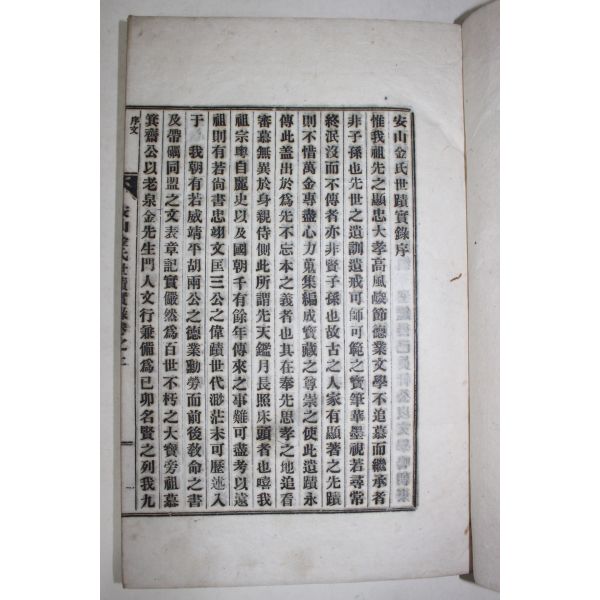 安山金氏世蹟實錄序
惟我祖先之顯忠大孝高風峻節德業文學不追慕而繼承者
非子孫也先世之遺訓遺戒可師可範之寶筆華墨視若尋常
終泯沒而不傳者亦非賢子孫也故古之人家有顯著之先蹟
則不惜萬金專盡心力蒐集編成寶藏之尊崇之使此遺蹟永
傳此盖出於爲先不忘本之義者也其在奉先思孝之地追看
審慕無異於身親侍側此所謂先天鑑月長照床頭者也嘻我
祖宗粤自麗史以及國朝千有餘年傳來之事難可盡考以遠
祖則有若尙書忠翊文匡三公之偉蹟世代渺茫未可歷述入
于　我朝有若威靖平胡兩公之德業勳勞而前後敎命之書
及帶礪同盟之文表章記實儼然爲百世不朽之大寶旁祖慕
箕齋公以老泉金先生門人文行兼備爲己卯名賢之列我九
序文
安山金氏世蹟實錄卷之上
一